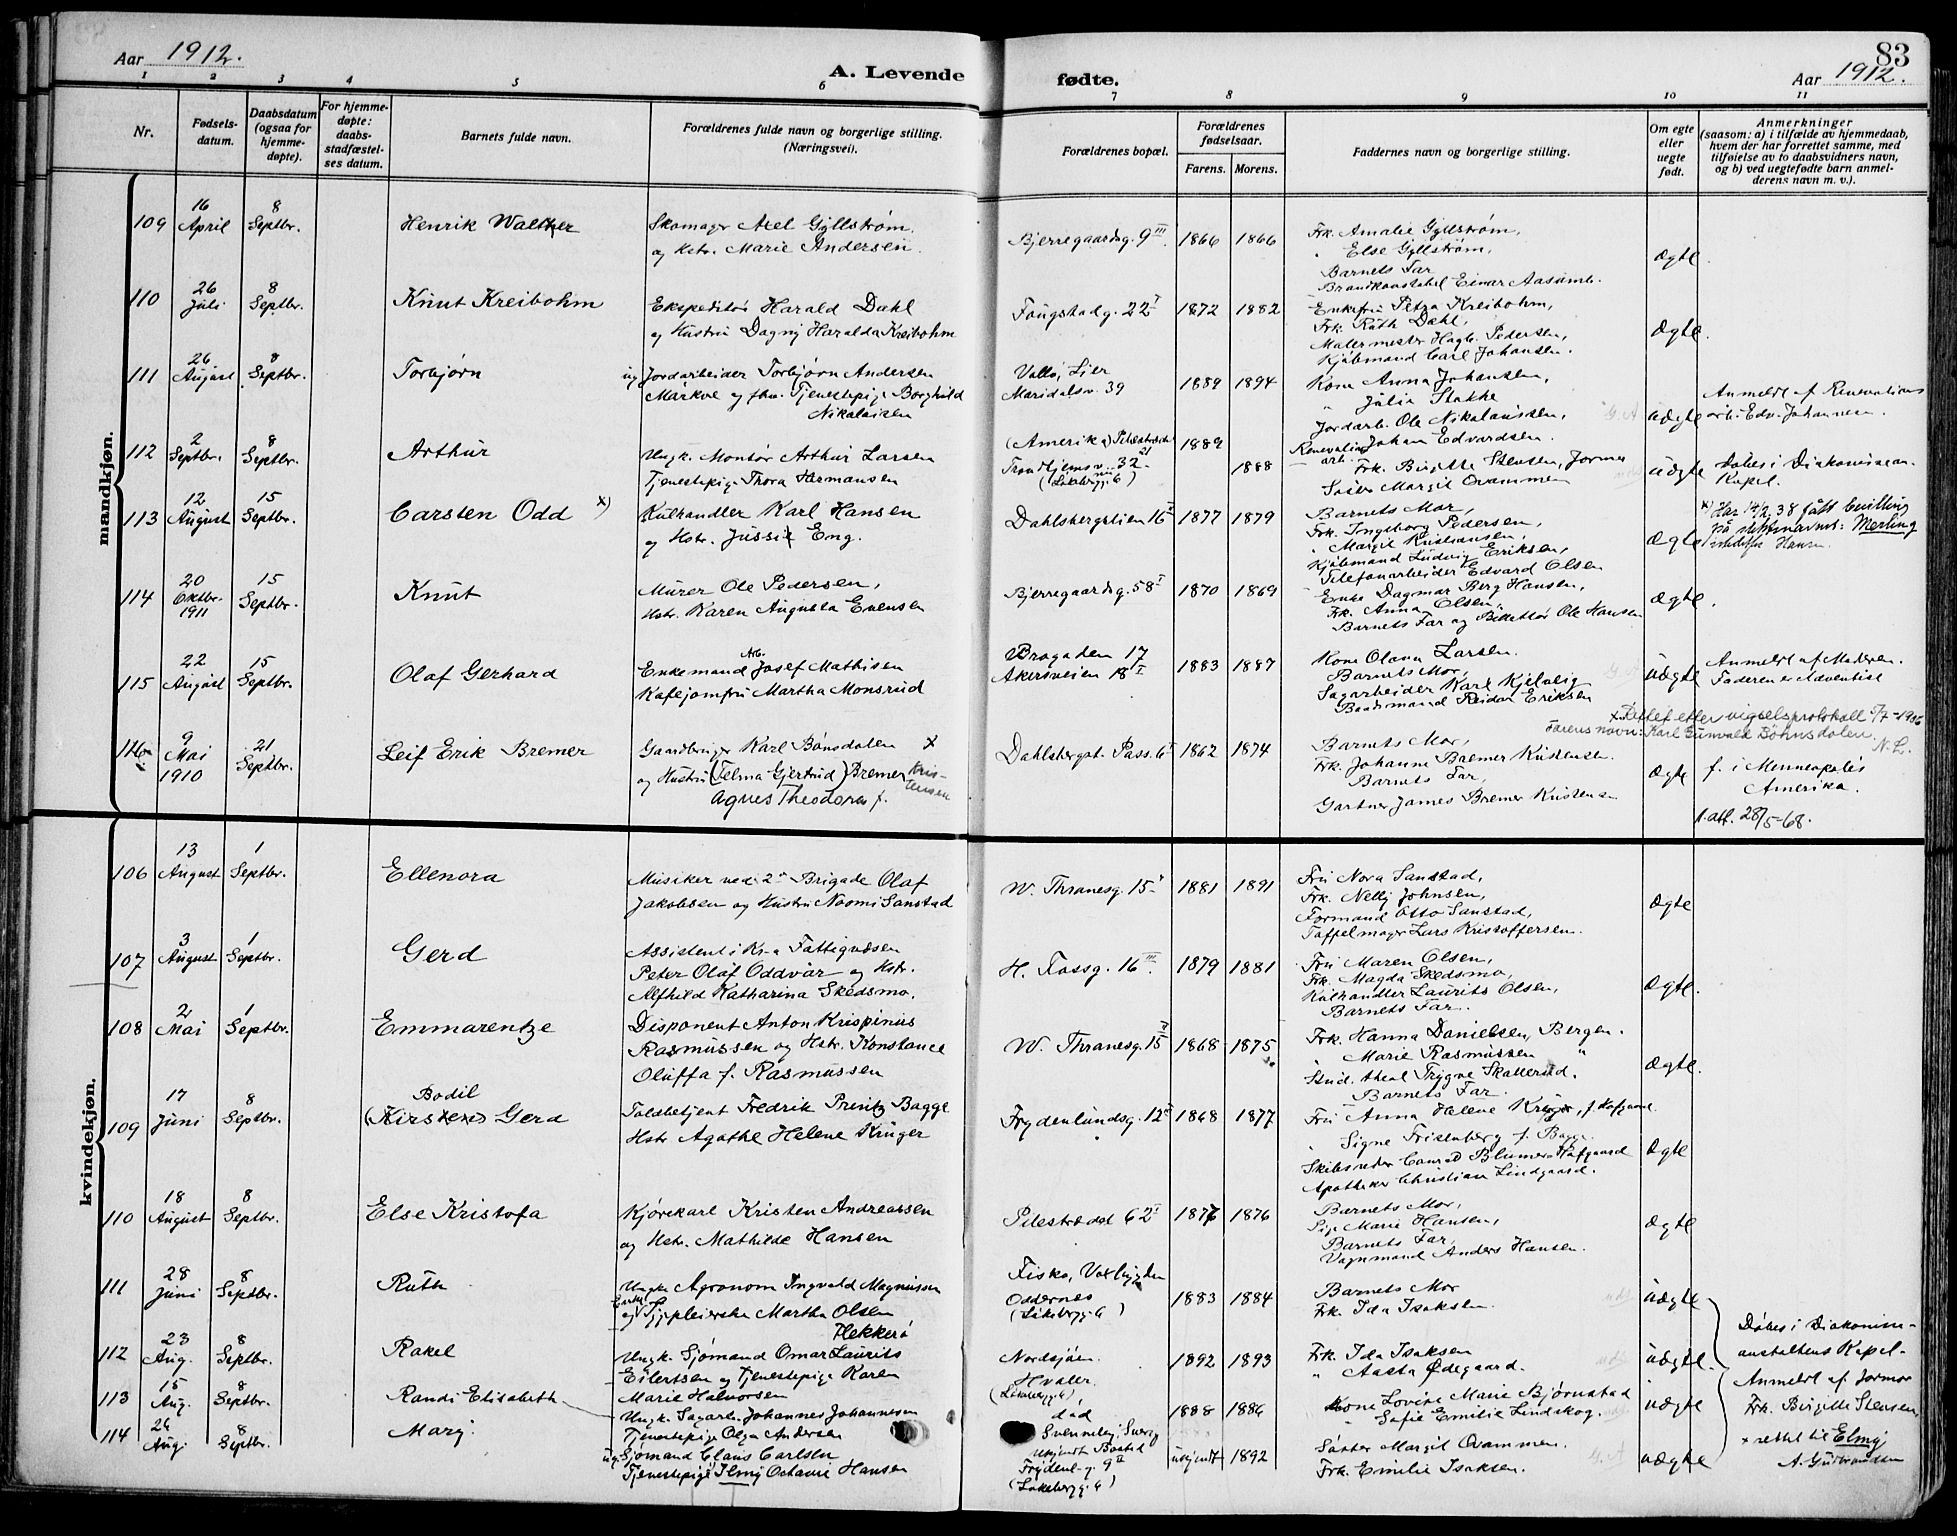 Aar 1912.
A. Levende fødte.
83
Aar 1912.
1 2 3 4 5 6 7 8 9 10 11
Nr.
Fødsels-
datum.
Daabsdatum
(ogsaa for
hjemme-
døpte).
For hjemme-
døpte:
daabs-
stadfæstel-
ses datum.
Barnets fulde navn.
Forældrenes fulde navn og borgerlige stilling.
(Næringsvei).
Forældrenes bopæl.
Forældrenes
fødselsaar.
Farens. Morens.
Faddernes navn og borgerlige stilling.
Om egte
eller
uegte
født.
Anmerkninger
(saasom: a) i tilfælde av hjemmedaab,
hvem der har forrettet samme, med
tilføielse av to daabsvidners navn,
og b) ved uegtefødte barn anmel-
derens navn m. v.).
mandkjøn.
109
16
April
8
Septbr.
Henrik Walther
Skomager Axel Gyllstrøm
og Hstr. Marie Andersen
Bjerregaardsg. 9 III.
1866 1866
Frk. Amalie Gyllstrøm,
" Else Gyllstrøm,
Barnets Far
Brandkonstabel Einar Aasamb.
Ægte
110
26
Juli
8
Septbr.
Knut Kreibohm
Ekspeditør Harald Dahl
og Hustru Dagny Haralda Kreibohm
Fougstadg. 22 I
1872 1882
Enkefru Petra Kreibohm,
Frk. Ruth Dahl,
Malermester Hagb. Pedersen,
Kjøbmand Carl Johansen.
Ægte
111
26
August
8
Septbr.
Torbjørn
ug Jordarbeider Torbjørn Andersen
Markve og fhv. Tjenestepige Borghild
Nikolaisen
Vallø, Lier
Maridalsv. 39
1889 1894
Kone Anna Johansen,
" Julia Slakke
Jordarb. Ole Nikolaissen,
Renovations arb. Johan Edvardsen.
uægte
Anmeldt af Renovations
arb. Edv. Johannesen.
112
2
Septbr.
8
Septbr.
Arthur
Ungk. Montør Arthur Larsen
Tjenestepige Thora Hermansen
(Amerika) Pilestrædet
Trondhjemsv. 32
(Lakebergg. 6)
1889
1888
Frk. Birgitte Stensen, Jormor
Søster Margit Ovammen
uægte
Døbes i Diakonissean.
Kapel.
113
12
August
15
Septbr.
Carsten Odd x)
Kulhandler Karl Hansen
og Hstr. Jussie Eng.
Dahlsbergstien 16 I
1877 1879
Barnets Mor,
Frk. Ingeborg Pedersen,
" Margit Kristiansen,
Kjøbmand Ludvig Eriksen,
Telefonarbeider Edvard Olsen
Ægte
x) Har 14/2 38 fått bevilling
på slektsnavnet: Merling
istedetfor Hansen.
114
20
Oktbr.
1911
15
Septbr.
Knut
Murer Ole Pedersen,
Hstr. Karen Augusta Evensen
Bjerregaardsg. 58 I
1870 1869
Enke Dagmar Berg Hansen,
Frk. Anna Olsen,
Barnets Far og Billettør Ole Hansen
Ægte.
115
22
August
15
Septbr.
Olaf Gerhard
Enkemand Arb. Josef Mathisen
Kafejomfru Martha Monsrud
Brogaden 17
Akersveien 18 I
1883 1887
Kone Olava Larsen.
Barnets Mor,
Sagarbeider Karl Kjelvlig
Baadsmand Reidar Eriksen
uægte
Anmeldt af Moderen.
Faderen er Adventist
116
9
Mai
1910
21
Septbr.
Leif Erik Bremer
Gaardbruger Karl Bønsdalen x
og Hustru (Telma Gjertrud) Bremer Kris-
tensen
Agnes Theodora f.
Dahlsbergst. Pass. 6 I
1862 1874
Barnets Mor,
Frk. Johanne Bremer Kristensen.
Barnets Far,
Gartner James Bremer Kristensen
Ægte
x Rettet etter vigselsprotokoll 5/7-1906
Farens navn: Karl Gunvald Bøhnsdalen
N. L.
f. i Menneapolis
Amerika.
1. att. 28/5-68.
kvindekjøn.
106
13
August
1
Septbr.
Ellenora
Musiker ved 2den Brigade Olaf
Jakobsen og Hustru Naomi Sanstad
W. Thranesg. 15
1881 1891
Fru Nora Sanstad,
Frk. Nelly Johnsen,
Formand Otto Sanstad,
Taffelmager Lars Kristoffersen.
Ægte
107
3
August
1
Septbr.
Gerd
Assistent i Kr-a Fattigvæsen
Peter Olaf Oddvar og Hstr.
Alfhild Katharina Skedsmo.
H. Fossg. 16 III.
1879 1881
Fru Maren Olsen,
Frk. Magda Skedsmo,
Kulhandler Laurits Olsen,
Barnets Far.
Ægte.
108
2
Mai
1
Septbr.
Emmarentze
Disponent Anton Krispinus
Rasmussen og Hstr. Konstance
Oluffa f. Rasmussen
W. Thranesg. 15
1868 1875
Frk. Hanna Danielsen, Bergen.
" Marie Rasmussen "
Stud. theol Trygve Skallerud.
Barnets Far.
Ægte.
109
17
Juni
8
Septbr.
Bodil
(Kirsten) Gerd
Toldbetjent Fredrik Prentz Bagge
Hstr Agathe Helene Krüger
Frydenlundsg. 12 I
1868 1877
Fru Anna Helene Krüger, f. Hofgaard.
" Signe Frisenberg f. Bagge.
Skibsreder Conrad Blumer Hofgaard
Apotheker Christian Lindgaard.
Ægte
110
18
August
8
Septbr.
Else Kristofa
Kjørekarl Kristen Andreassen
og Hstr. Mathilde Hansen
Pilestrædet 62 I
1877 1876
Barnets Mor,
Sig. Marie Hansen,
Barnets Far,
Vognmand Anders Hansen.
Ægte
111
28
Juni
8
Septbr.
Ruth
Ungk. Agronom Ingvald Magnussen
og Sygepleierske Martha Olsen
Hekkerø
Fiskø, Voxbygden
Oddernes
(Lakebergg. 6)
1883 1884
Barnets Mor
Frk. Ida Isaksen.
uægte
112
23
Aug.
8
Septbr.
Rakel
Ungk. Sjømand Omar Laurits
Eilertsen og Tjenestepige Karen
Marie Halvorsen
Nordsjøen.
Hvaler.
(Lakebergg. 6)
1892 1893
Frk. Ida Isaksen
" Aasta Ødegaard.
uægte.
113
15
Aug.
8
Septbr.
Randi Elisabeth
Ungk. Sagarb. Johannes Johannesen
Tjenestepige Olga Andersen
død
1888 1886
Kone Lovise Marie Bjørnstad
" Sofie Emilie Lindskog.
uægte
114
24
Aug.
8
Septbr.
Mary
ug. Sjømand Claus Carlsen
Tjenestepige Elmy Octavie Hansen
Ukjendt Bosted
Frydenl. g. 9 II
(Lakebergg. 6)
ukjendt 1892
Søster Margit Ovammen.
Frk. Emilie Isaksen.
uægte
Døbes i Diakonisse-
anstaltens Kapel.
Anmeldt af Jormor
Frk. Birgitte Stensen,
x rettet til Elmy
A. Gudbrandsen